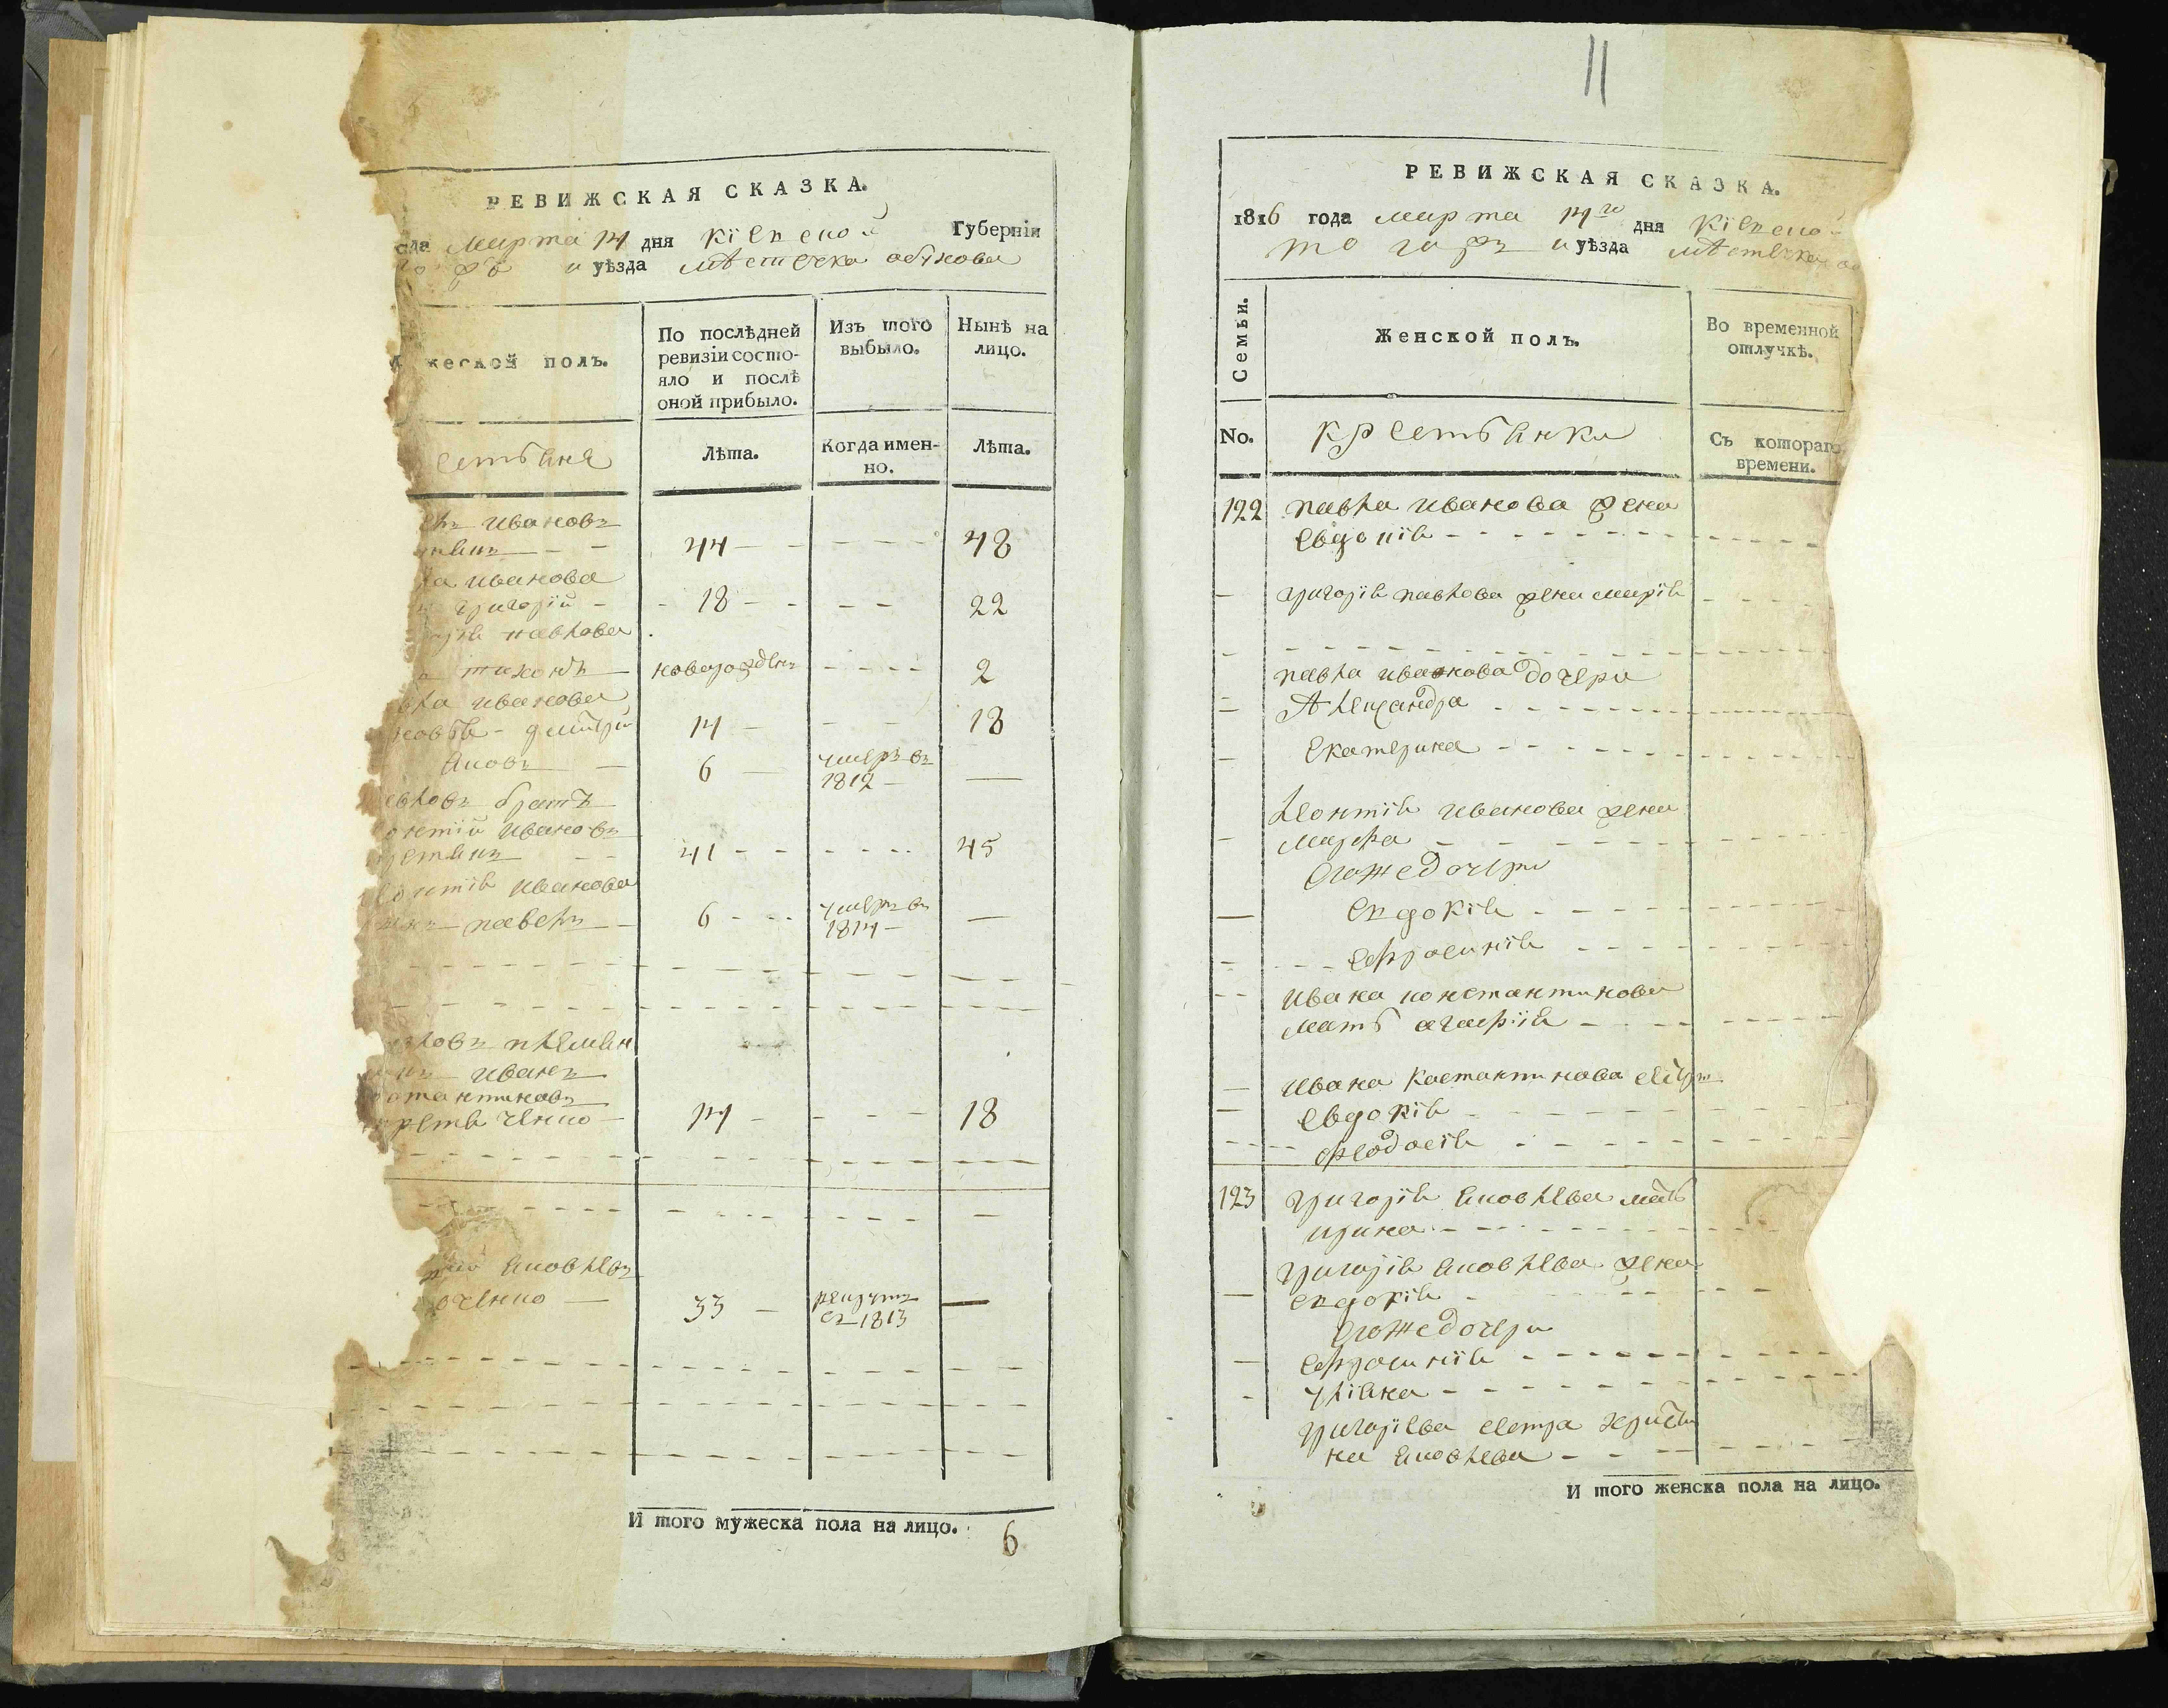 РЕВИЖСКАЯ СКАЗКА.
ода марта 14 дня Кіевской Губерніи
и уѣзда мѣстечка обухова
жеской полъ.
По послѣдней
ревизіи состо-
яло и послѣ
оной прибыло.
Изъ того
выбыло.
Нынѣ на
лицо.
естьяня
Лѣта.
Когда имен-
но.
Лѣта.
елъ ивановъ
44 48
ла иванова
григорій 18 22
павлова
тихонъ новорожденъ 2
вла иванова
дмитрій 14 18
яковъ 6 умеръ въ
1812
братъ
онтій ивановъ
41 45
еонтія иванова
павелъ 6 умеръ въ
1814
влов племян
иванъ
стантиновъ
14 18
яковлевъ
33 рекрут
съ 1813
И того мужеска пола на лицо. 6
11
РЕВИЖСКАЯ СКАЗКА.
1816 года марта 14го дня Кіевской
то гожъ и уѣзда мѣстечка
Семьи.
Женской полъ.
Во временной
отлучкѣ.
No.
крестьянки
Съ котораго
времени.
122 павла иванова жена
евдокія
григорія павлова жена марія
павла иванова дочери
Александра
екатерина
леонтія иванова жена
марфа
егоже дочери
евдокія
ефросинія
ивана константинова
мать агафія
ивана костантинова сестры
евдокія
феодосія
123 григорія яковлева мать
ирина
григорія яковлева жена
евдокія
егоже дочери
ефросинія
уліяна
григоріева сестра христи
на яковлева
И того женска пола на лицо.